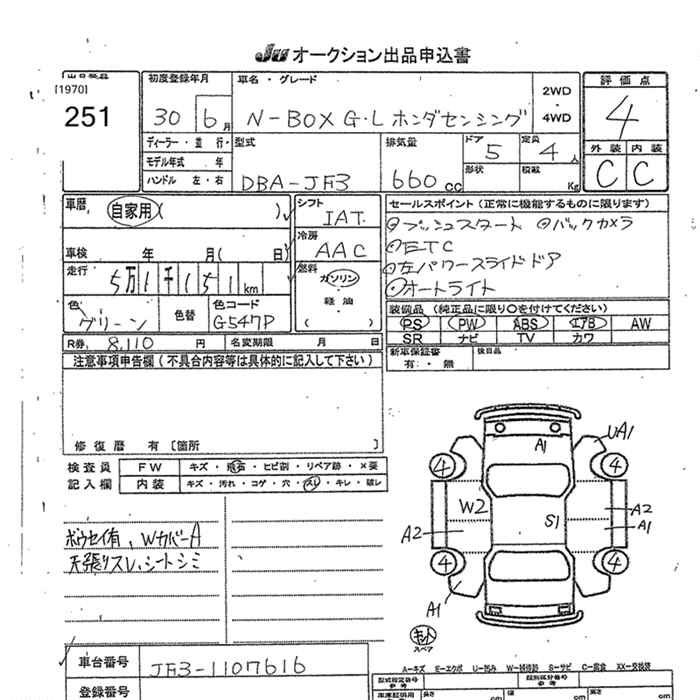 JU オークション出品申込書
[1970]
251
初度登録年月
30 6月
車名・グレード
N-BOX G・L ホンダセンシング
2WD
・
4WD
評価点
4
外装 内装
C C
ディーラー・並行・
モデル年式 年
ハンドル 左・右
型式
DBA-JF3
排気量
660cc
ドア
5
定員
4人
形状
積載
Kg
車歴 自家用( )
車検 年 月( 日)
走行 5万1千151km
色
グリーン
色替
色コード
G547P
シフト
IAT
冷房
AAC
燃料
ガソリン
・
軽油
・
( )
セールスポイント(正常に機能するものに限ります)
◎プッシュスタート ◎バックカメラ
◎ETC
◎左パワースライドドア
◎オートライト
装備品(純正品に限り○を付けてください)
PS PW ABS エアB AW
SR ナビ TV カワ
新車保証書
有・無
後日品
R券 8,110 円 名変期限 月 日
注意事項申告欄(不具合内容等は具体的に記入して下さい)
修復歴 有〔箇所 〕
検査員 FW キズ・飛石・ヒビ割・リペア跡・×要
記入欄 内装 キズ・汚れ・コゲ・穴・スレ・キレ・破レ
ボウセイ有、Wカバー A
天張りスレ、シートシミ
A1
UA1
4
4
W2
S1
A2
A1
A2
4
4
A1
キット
スペア
車台番号 JF3-1107616
登録番号
A-キズ E-エクボ U-凹み W-補修跡 S-サビ C-腐食 XX-交換済
型式指定番号
類別区分番号
長さ cm